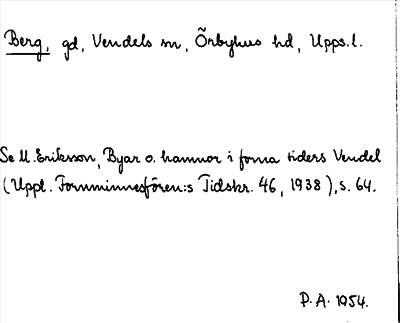 Berg, gd, Vendels sn, Örbyhus hd, Upps.l.
Se M. Eriksson, Byar o. hamnor i forna tiders Vendel
(Uppl. Fornminnesfören:s Tidskr. 46, 1938), s. 64.
P.A. 1954.